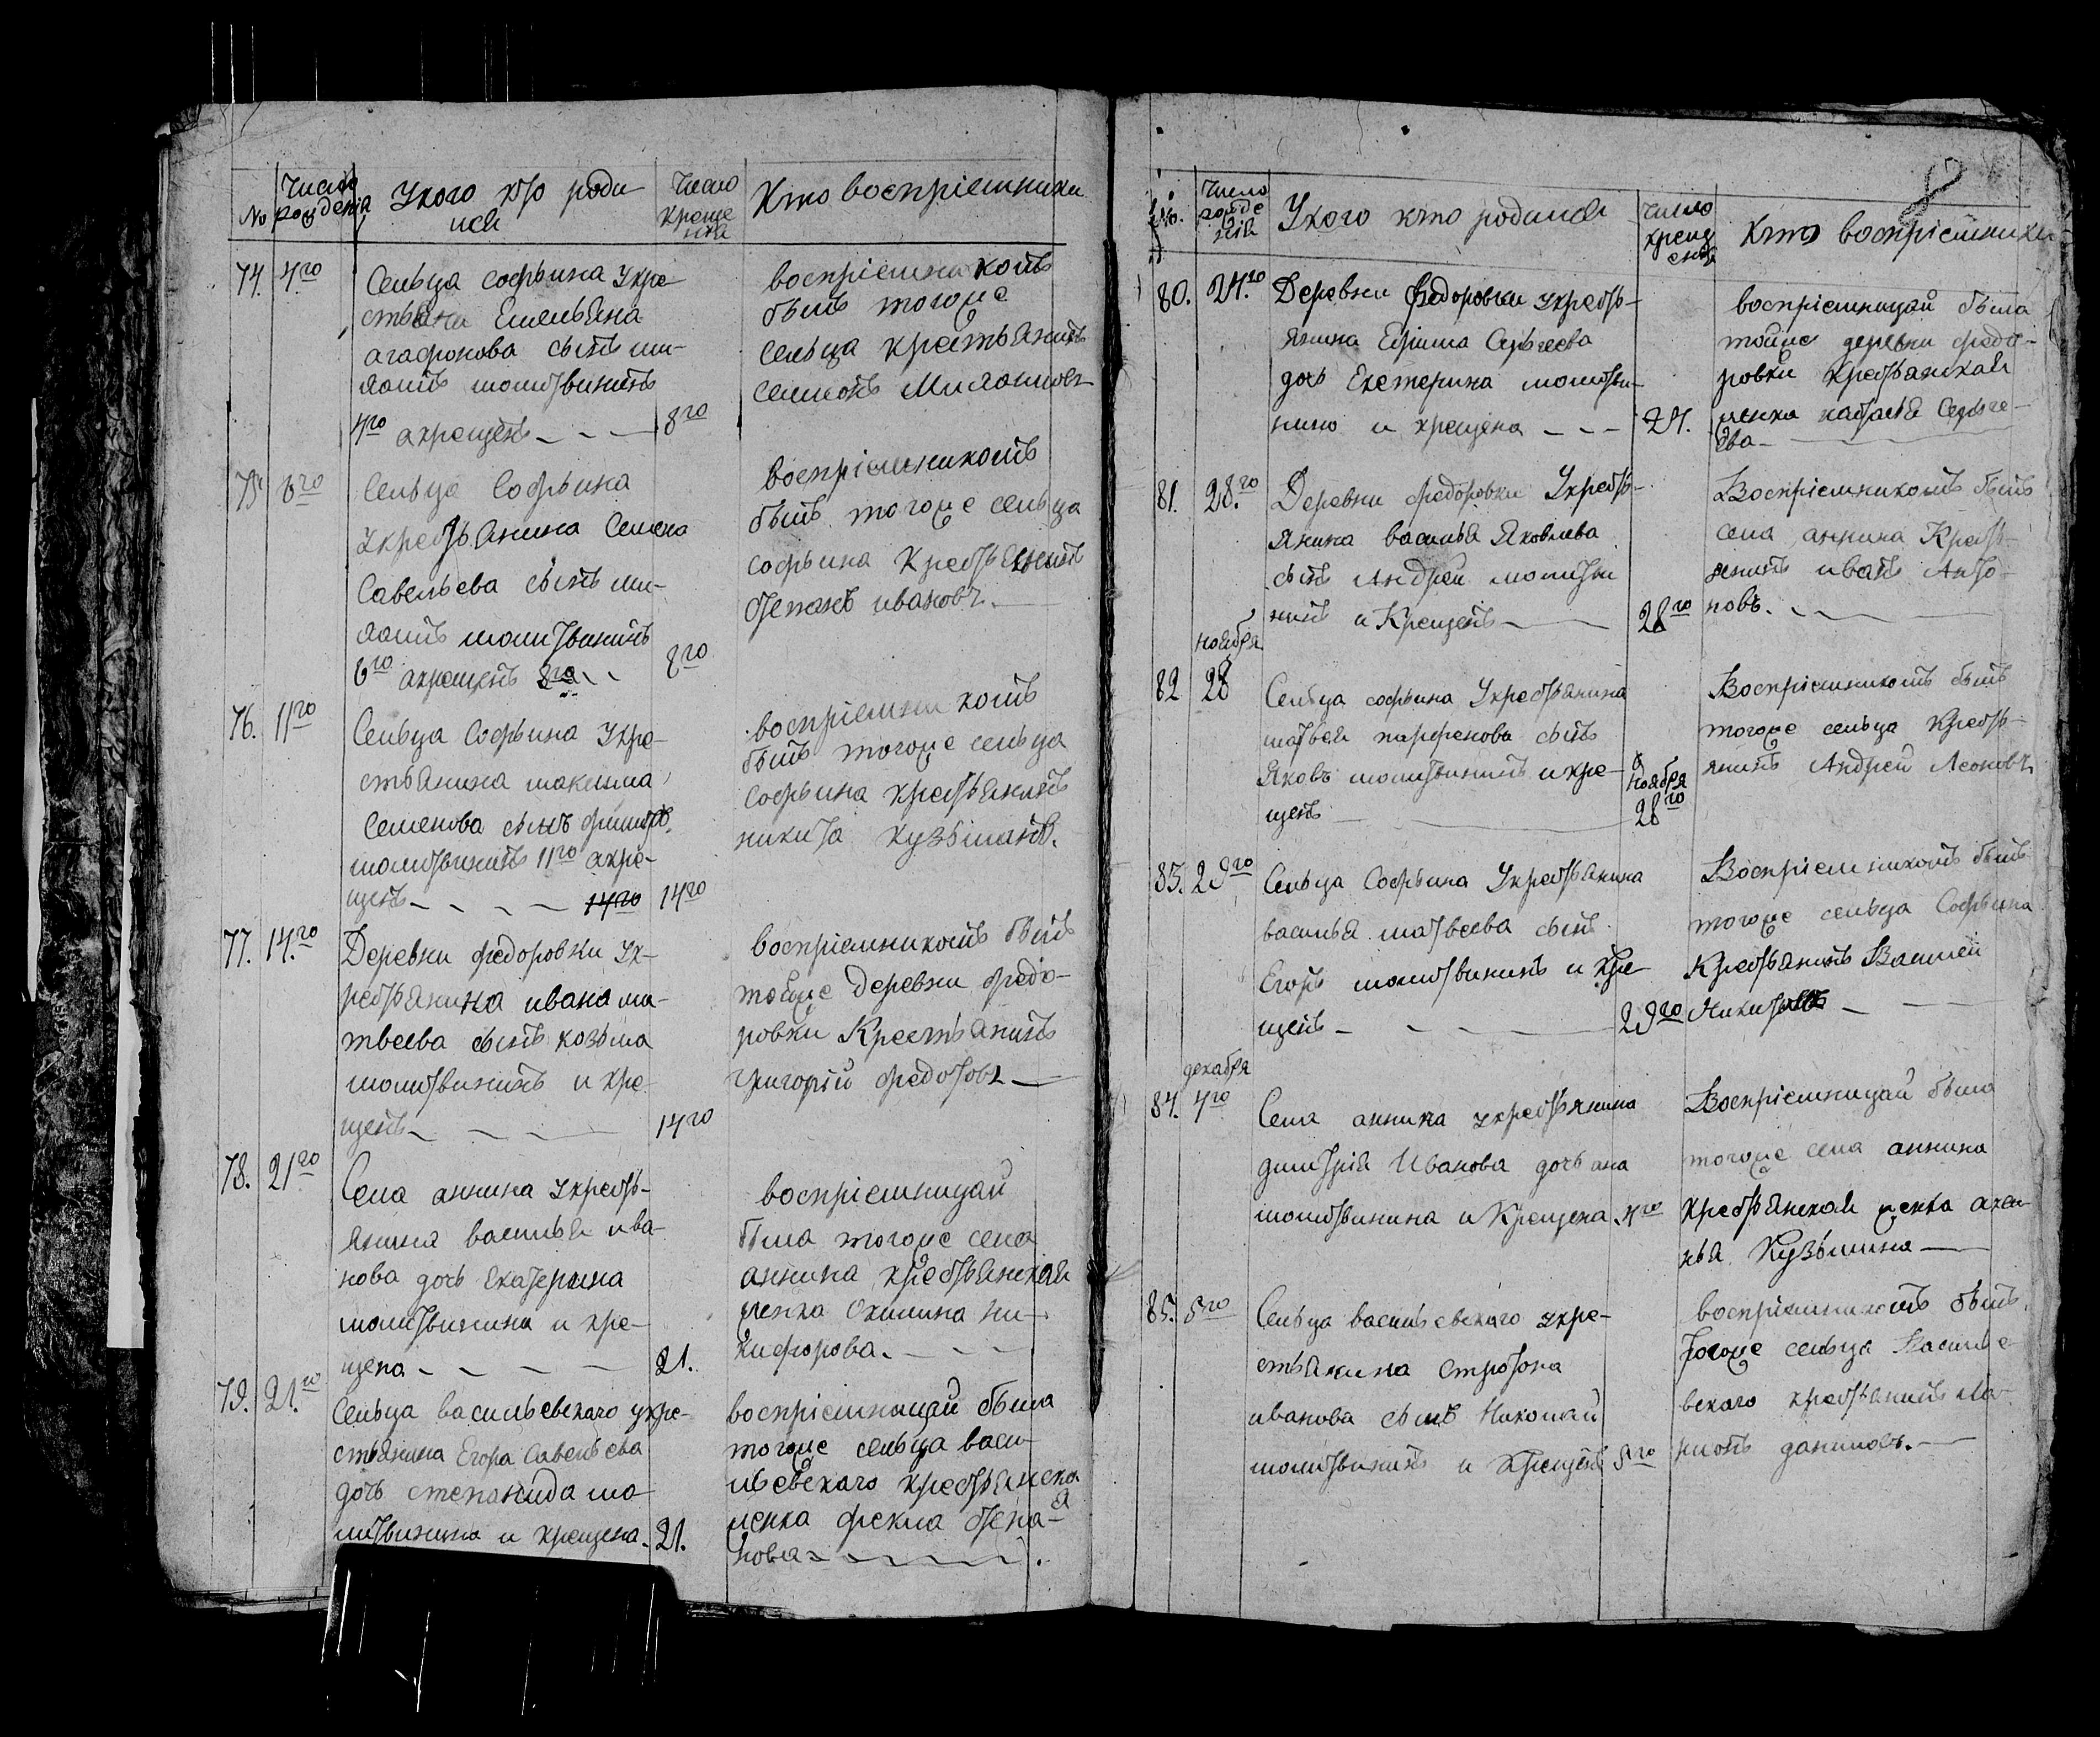 No
Число
рожденія
Укого кто роди
лся
Число
креще
нія
Кто воспріемники
74.
4го
Сельца Софьина укре
стьянина Емельяна
агафонова сынъ ми-
ланъ молитвинъ
4го акрещенъ
8го
воспріемникомъ
былъ тогоже
сельца крестьянинъ
75
6го
Сельца Софьина
укрестьянина Семена
Савельева сынъ ми-
молитвинъ
6го акрещенъ 8го
8го
воспріемникомъ
былъ тогоже сельца
софьина крестьянинъ
степанъ ивановъ.
76.
11го
Сельца Софьина укре-
стьянина максима
Семенова сынъ филипъ
молитвинъ 11го акре-
щенъ 14го
14го
воспріемникомъ
былъ тогоже сельца
софьина крестьянинъ
никита кузьминъ.
77.
14.го
Деревни федоровки ук-
рестьянина ивана ма-
твеева сынъ козьма
молитвининъ и кре
щенъ
14го
воспріемникомъ былъ
тойже деревни федо-
ровки Крестьянинъ
григорій федотовъ
78.
21го
Села аннина укресть-
янина василья ива-
нова дочь екатерина
молитвинина и кре-
щена
21.
воспріемницай
была тогоже села
аннина крестьянская
женка Ни-
кифорова.
79.
21.го
Сельца васильевскаго укре-
стьянина Егора Савельева
дочь степанида мо
литвинина и крещена.
21.
воспріемницай была
тогоже сельца васи-
льевскаго крестьянска
я
женка фекла степа-
нова
Число
рожде
нія
Укого кто родился
число
крещ
енія
Кто воспріемники
80.
24.го
Деревни Федоровки укресть-
янина Ефима Сергеева
дочь Екатерина молитви-
нино и крещена
24.
воспріемницай была
тойже деревни федо-
ровки Крестьянская
женка насталя Сергее-
ева
81.
28.го
Деревни федоровки Укресть-
янина василья Яковлева
сынъ Андрей молитви
нинъ и Крещенъ
28го
Воспріемникомъ былъ
села аннина Кресть-
янинъ иванъ Анто-
новъ.
ноября
82
28
Сельца софьина Укрестьянина
матвея парфенова сынъ
Яковъ молитвининъ икре-
щенъ
ноября
28го
Воспріемникомъ былъ
тогоже сельца Кресть-
янинъ Андрей Леоновъ
83.
29го
Сельца Софьина Укрестьянина
василья матвеева сынъ
Егоръ молитвининъ и кре
щенъ
29го
Воспріемникомъ былъ
тогоже сельца Софьина
Крестьянинъ Василей
Никитовъ
декабря
84.
4го
Села аннина укрестьянина
димитрія Иванова дочь анна
молитвинина и Крещена
4го
Воспріемницай была
тогоже села аннина
Крестьянская женка аксе
нья Кузьмина
85.
5го
Сельца васильевскаго укре-
стьянина Строфона
иванова сынъ Николай
молитвининъ и Крещенъ
5го
воспріемникомъ былъ
тогоже сельца Василье
вскаго крестьянинъ Ла
ріонъ даниловъ.